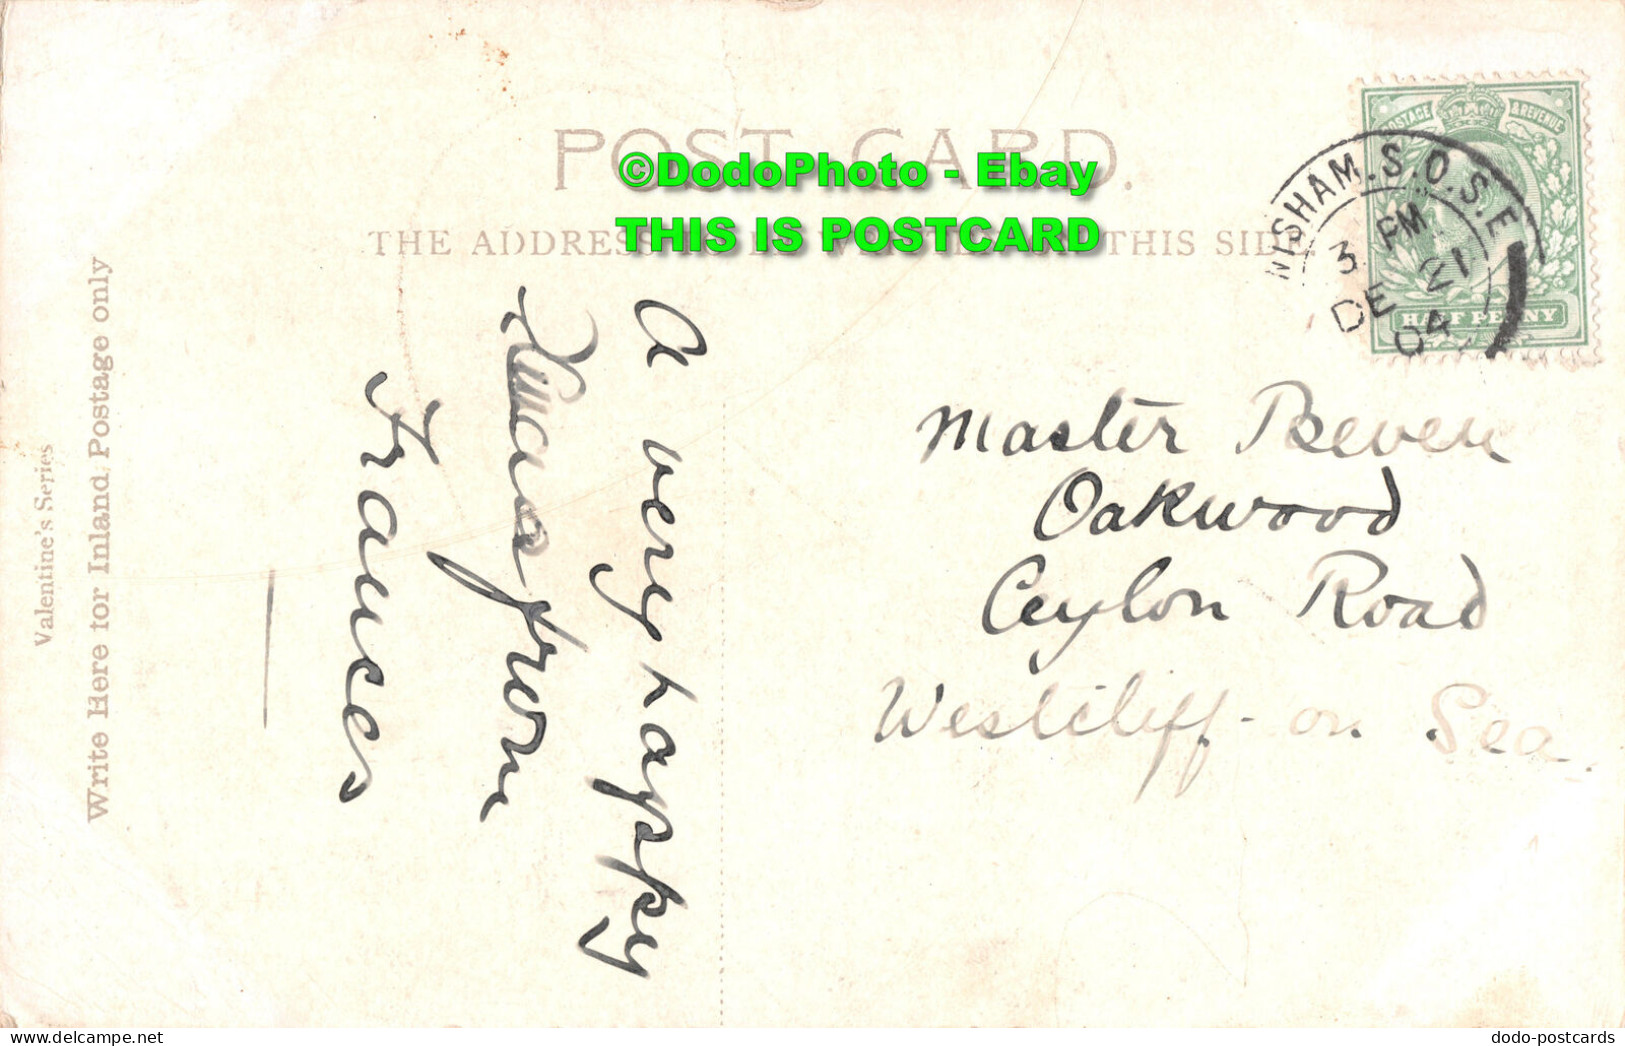 POST CARD.
©DodoPhoto - Ebay
THIS IS POSTCARD
THE ADDRES THIS SIDE
POSTAGE & REVENUE
HALF PENNY
NISHAM.S.O.S.E
3 PM
DE 21
04
Valentine's Series
Write Here for Inland Postage only
A very happy
Xmas from
Frances
Master Beven
Oakwood
Ceylon Road
Westcliff-on Sea
Delcampe.net
dodo-postcards